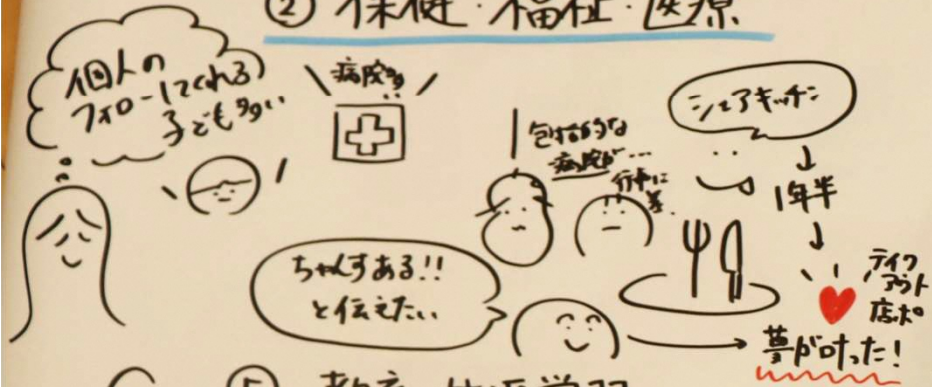 ② 保健・福祉・医療
個人の
フォローしてくれる
子ども多い
病院多
包括的な
病院が…
行事に
差
シェアキッチン
↓
1年半
↓
テイク
アウト
店ポ
夢が叶った!
ちゃんすある!!
と伝えたい
⑤ 教育